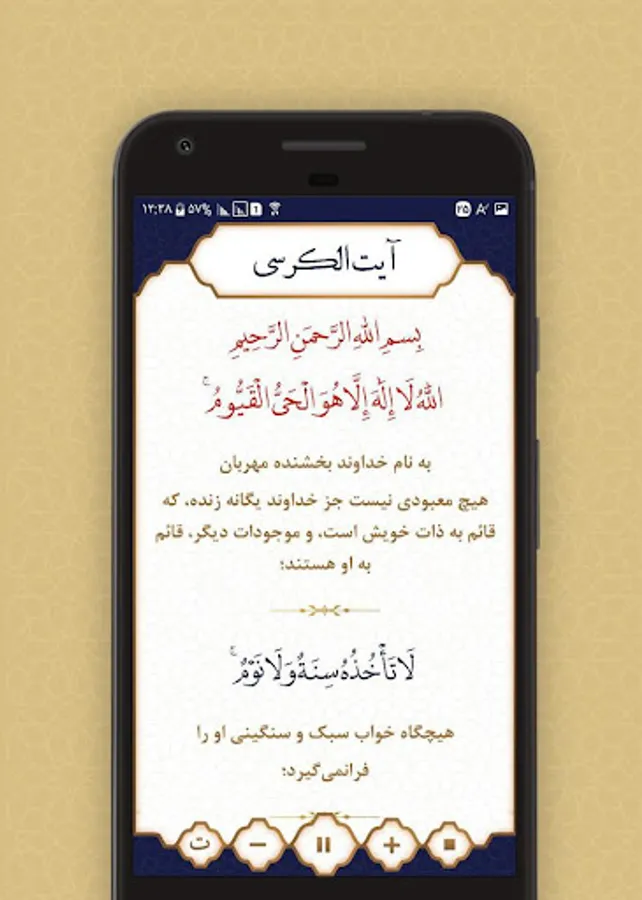 ۱۲:۳۸ ۵۷% 1 ۲۵ A
آیت الکرسی
بِسمِ اللهِ الرَّحمَنِ الرَّحِیمِ
اللهُ لَا إِلَٰهَ إِلَّا هُوَ الْحَيُّ الْقَيُّومُ ۚ
به نام خداوند بخشنده مهربان
هیچ معبودی نیست جز خداوند یگانه زنده، که
قائم به ذات خویش است، و موجودات دیگر، قائم
به او هستند؛
لَا تَأْخُذُهُ سِنَةٌ وَلَا نَوْمٌ ۚ
هیچگاه خواب سبک و سنگینی او را
فرانمی‌گیرد؛
ت